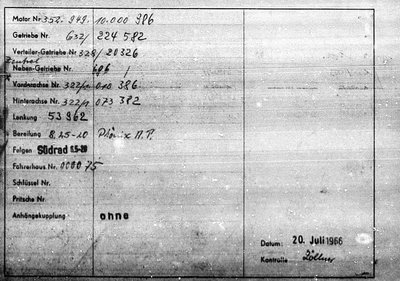 Motor Nr. 352. 949. 10.000 986
Getriebe Nr. 632/ 224 582
Verteiler-Getriebe Nr. 328/ 20326
Neben-Getriebe Nr. 696 /
Vorderachse Nr. 322/2 010 386
Hinterachse Nr. 322/2 073 382
Lenkung 53 962
Bereifung 8.25-20 Phönix M.P.
Felgen Südrad 6.5-20
Fahrerhaus Nr. 0000 75
Schlüssel Nr.
Pritsche Nr
Anhängekupplung ohne
Datum: 20. Juli 1966
Kontrolle Zöllner